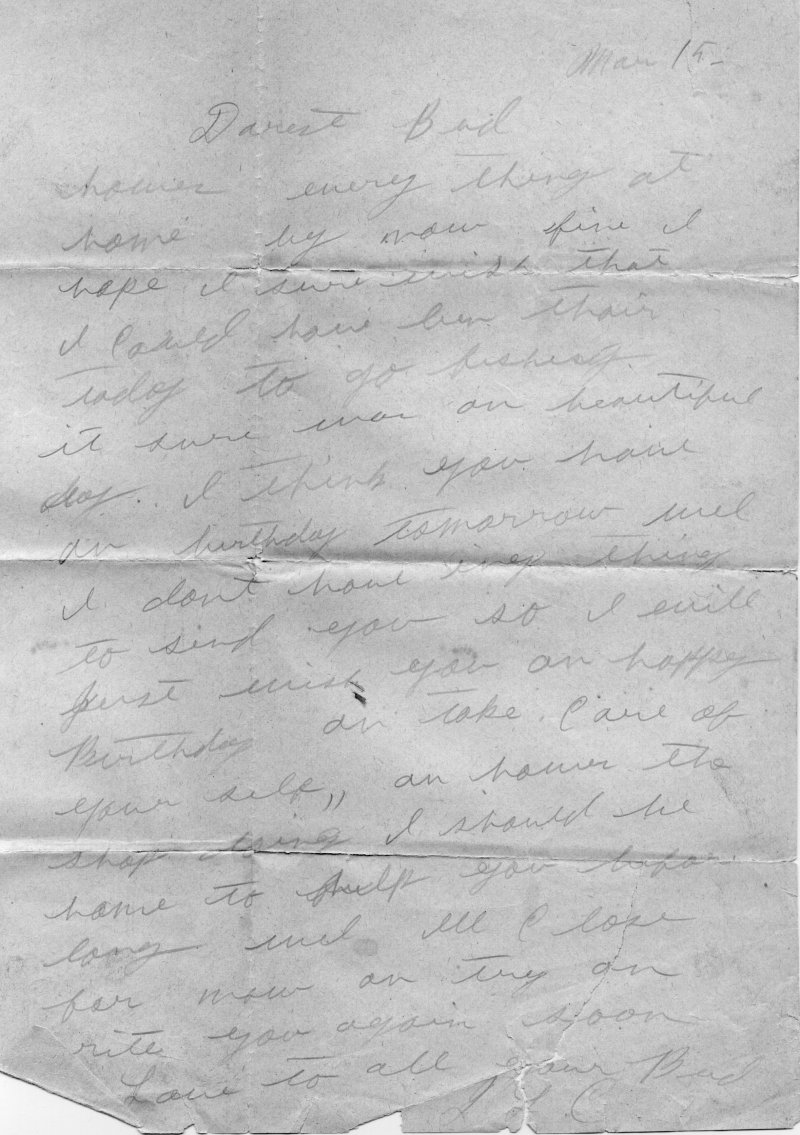 Mar 15-
Darest Bud
howes every thing at
home by now fine I
hope I sure wish that
I Could have ben thair
today to go fishing
it sure was an beautiful
day. I think you have
an birthday tomorrow wel
I dont have iny thing
to send you so I will
just wish you an happy
Birthday an take Care of
your self,, an howes the
shop doing I should be
home to help you befor
long wel Ill Close
for now an try an
rite you again soon
Love to all your Bud